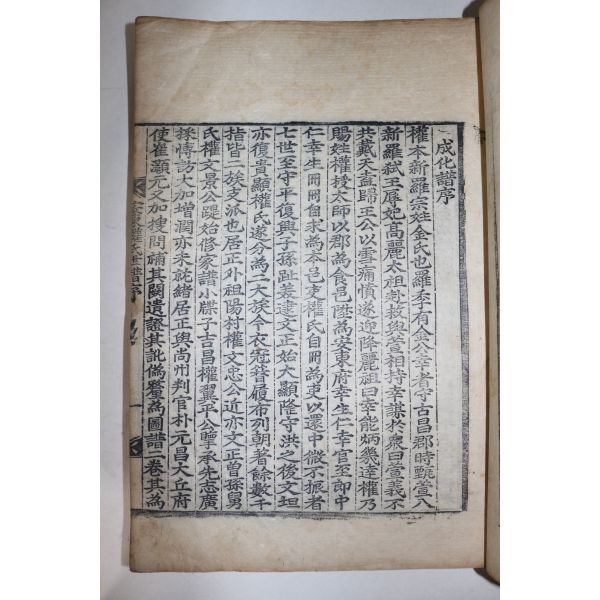 成化譜序
權本新羅宗姓金氏也羅季有金公幸者守古昌郡時甄萱入
新羅弑王辱妃高麗太祖赴救與萱相持幸謀於衆曰萱義不
共戴天盍歸王公以雪痛憤遂迎降麗祖曰幸能炳幾達權乃
賜姓權授太師以郡為食邑陞為安東府幸生仁幸官至郎中
仁幸生冊冊自求為本邑吏權氏自冊為吏以還中微不振者
七世至守平復興子孫趾美逮文正始大顯隆守洪之後文坦
亦復貴顯權氏遂分為二大族今衣冠簪履布列朝著餘數千
指皆二族支派也居正外祖陽村權文忠公近亦文正曾孫舅
氏權文景公踶始修家譜小牒子古昌權翼平公擥承先志廣
採博訪大加增潤亦未就緒居正與尚州判官朴元昌大丘府
使崔灝元又加搜問補其闕遺證其訛偽釐為圖譜二卷其為
譜序
一